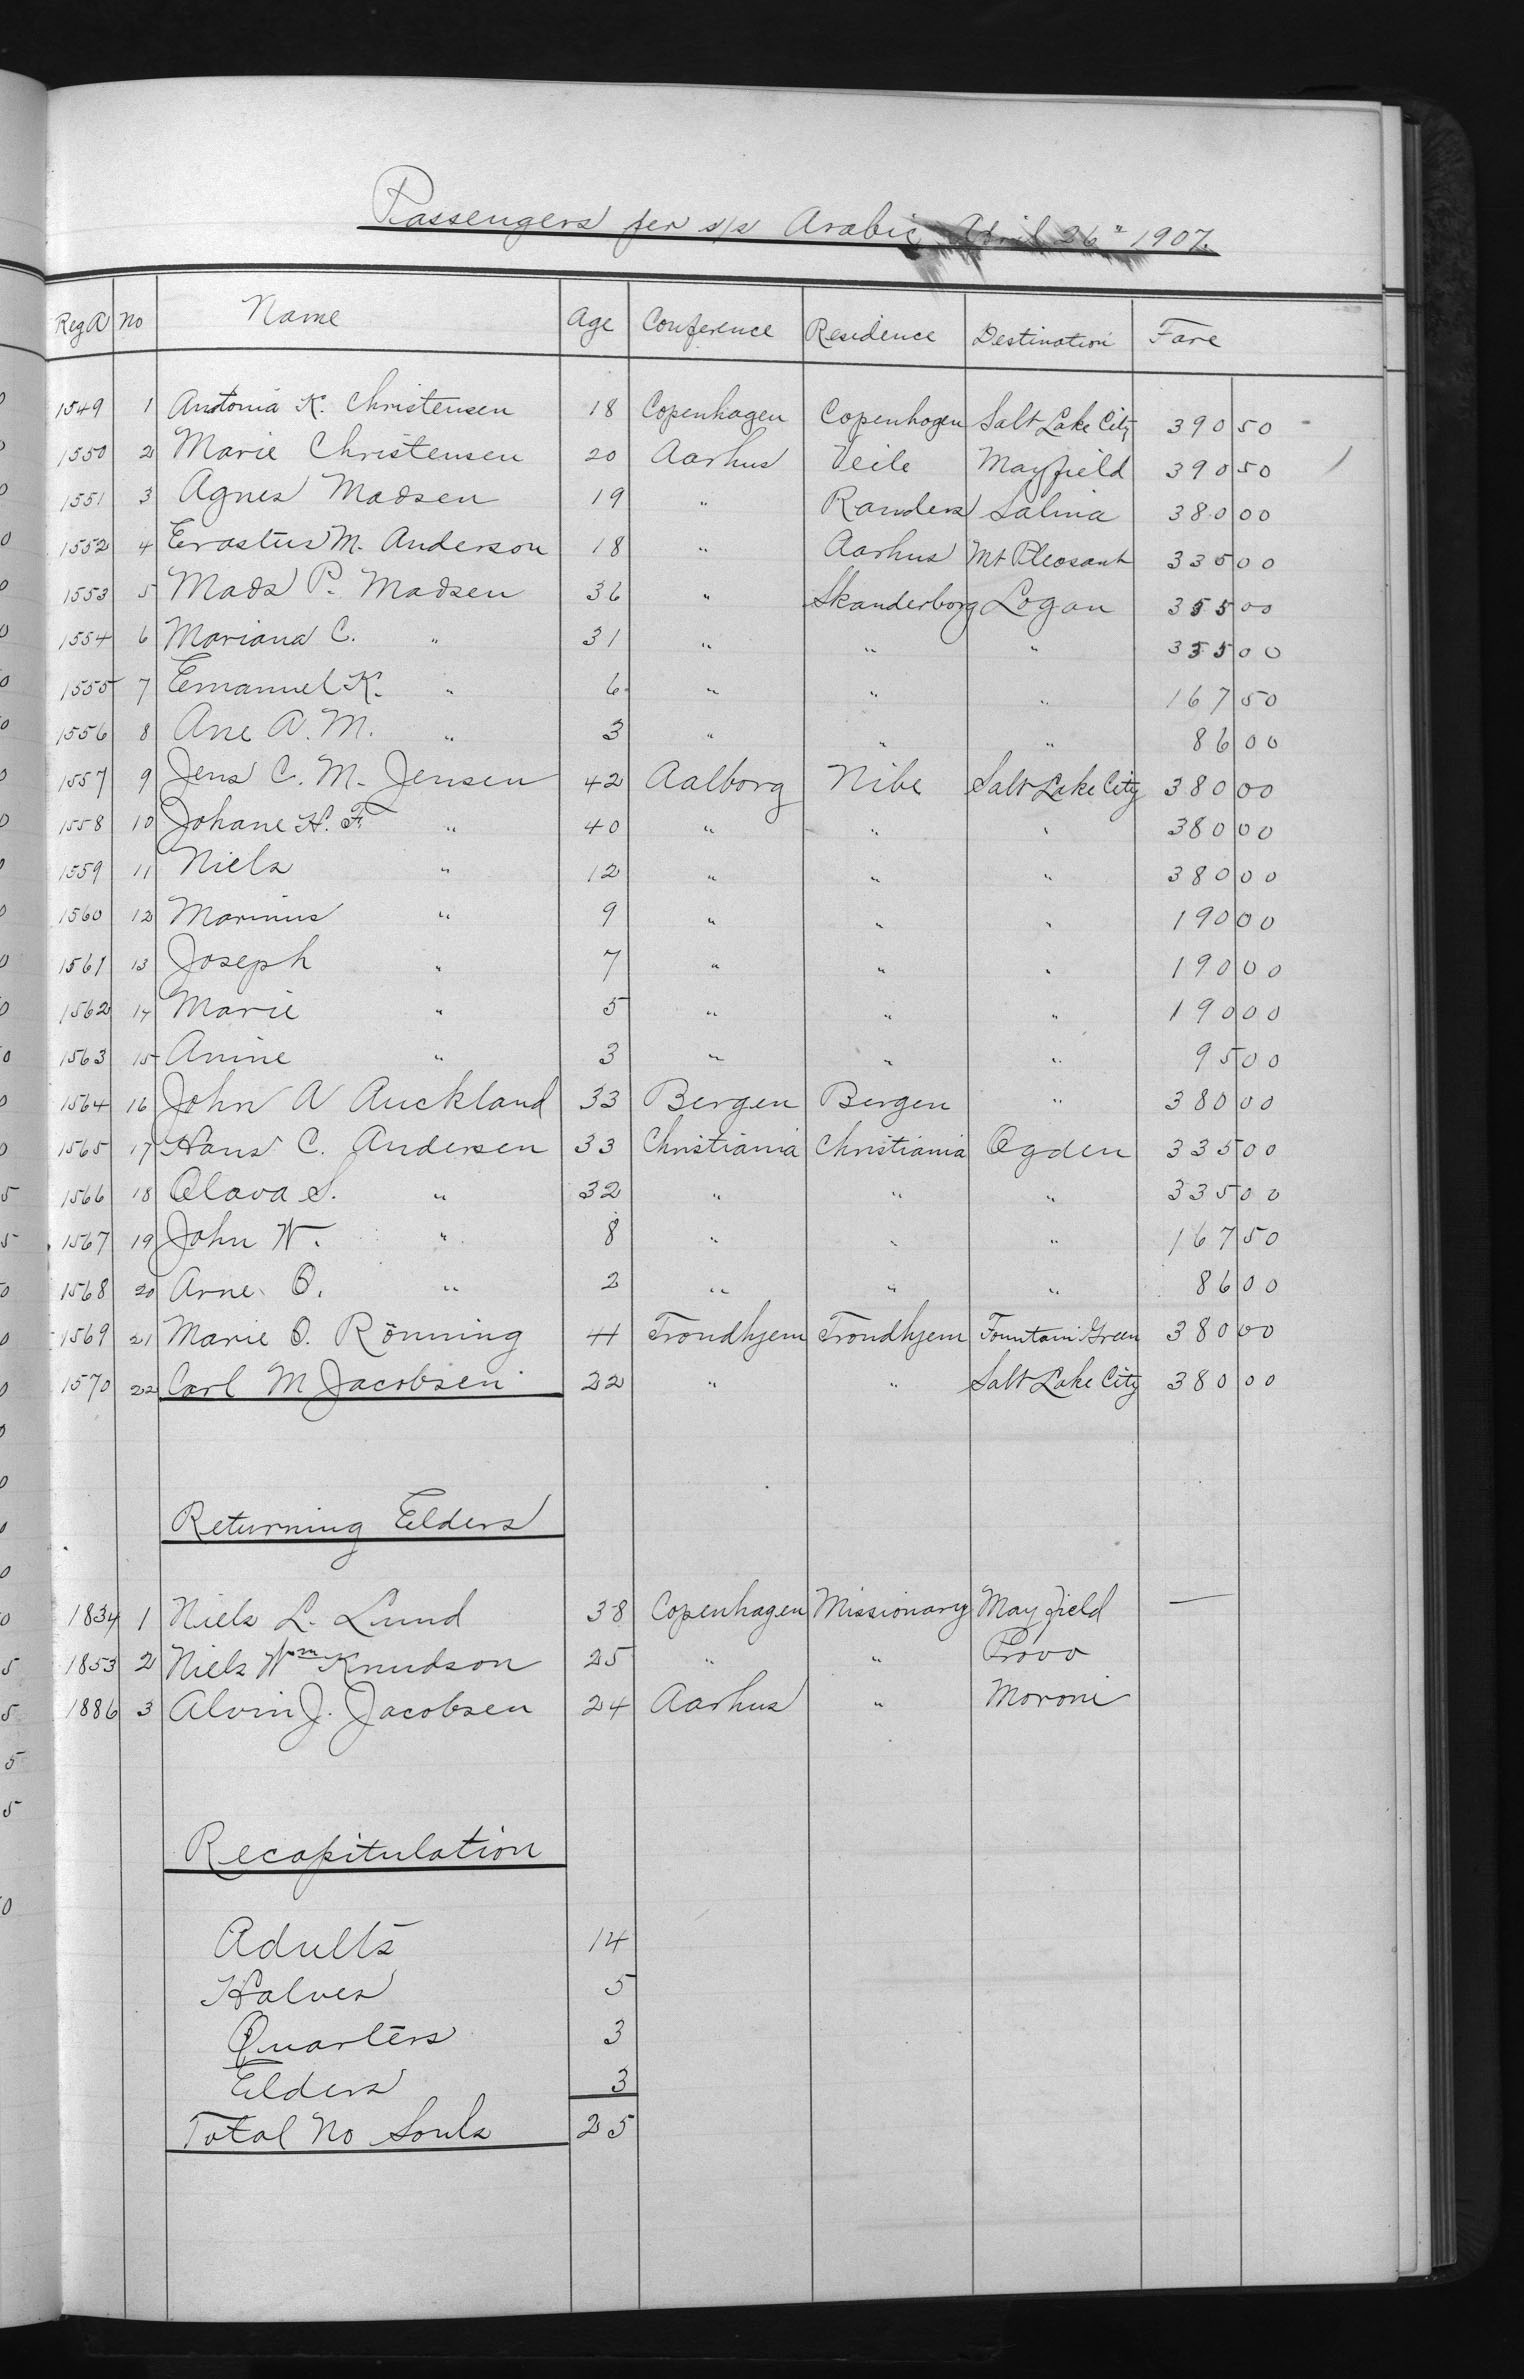 Passengers per s/s Arabic April 26" 1907.
Reg A No Name Age Conference Residence Destination Fare
1549 1 Antonia K. Christensen 18 Copenhagen Copenhagen Salt Lake City 390 50
1550 2 Marie Christensen 20 Aarhus Veile Mayfield 390 50
1551 3 Agnes Madsen 19 " Randers Salina 380 00
1552 4 Erastus M. Anderson 18 " Aarhus Mt Pleasant 335 00
1553 5 Mads P. Madsen 36 " Skanderborg Logan 355 00
1554 6 Mariana C. " 31 " " " 335 00
1555 7 Emanuel K. " 6 " " " 167 50
1556 8 Ane A. M. " 3 " " " 86 00
1557 9 Jens C. M. Jensen 42 Aalborg Nibe Salt Lake City 380 00
1558 10 Johane H. F. " 40 " " " 380 00
1559 11 Niels " 12 " " " 380 00
1560 12 Marinus " 9 " " " 190 00
1561 13 Joseph " 7 " " " 190 00
1562 14 Marie " 5 " " " 190 00
1563 15 Anine " 3 " " " 95 00
1564 16 John A Auckland 33 Bergen Bergen " 380 00
1565 17 Hans C. Andersen 33 Christiania Christiania Ogden 335 00
1566 18 Olava S. " 32 " " " 335 00
1567 19 John W. " 8 " " " 167 50
1568 20 Arne O. " 2 " " " 86 00
1569 21 Marie O. Rönning 41 Trondhjem Trondhjem Fountain Green 380 00
1570 22 Carl M Jacobsen 22 " " Salt Lake City 380 00
Returning Elders
1834 1 Niels L. Lund 38 Copenhagen Missionary Mayfield —
1853 2 Niels Wm Knudson 25 " " Provo
1886 3 Alvin J. Jacobsen 24 Aarhus " Moroni
Recapitulation
Adults 14
Halves 5
Quarters 3
Elders 3
Total No Souls 25